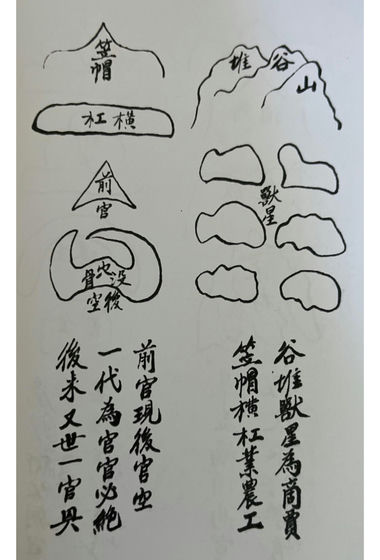 山谷堆
獸星
笠帽
横杠
前官
没
骨
後空
谷堆獸星為商賈
笠帽横杠業農工
前官現後官空
一代為官官必絕
後来又世一官